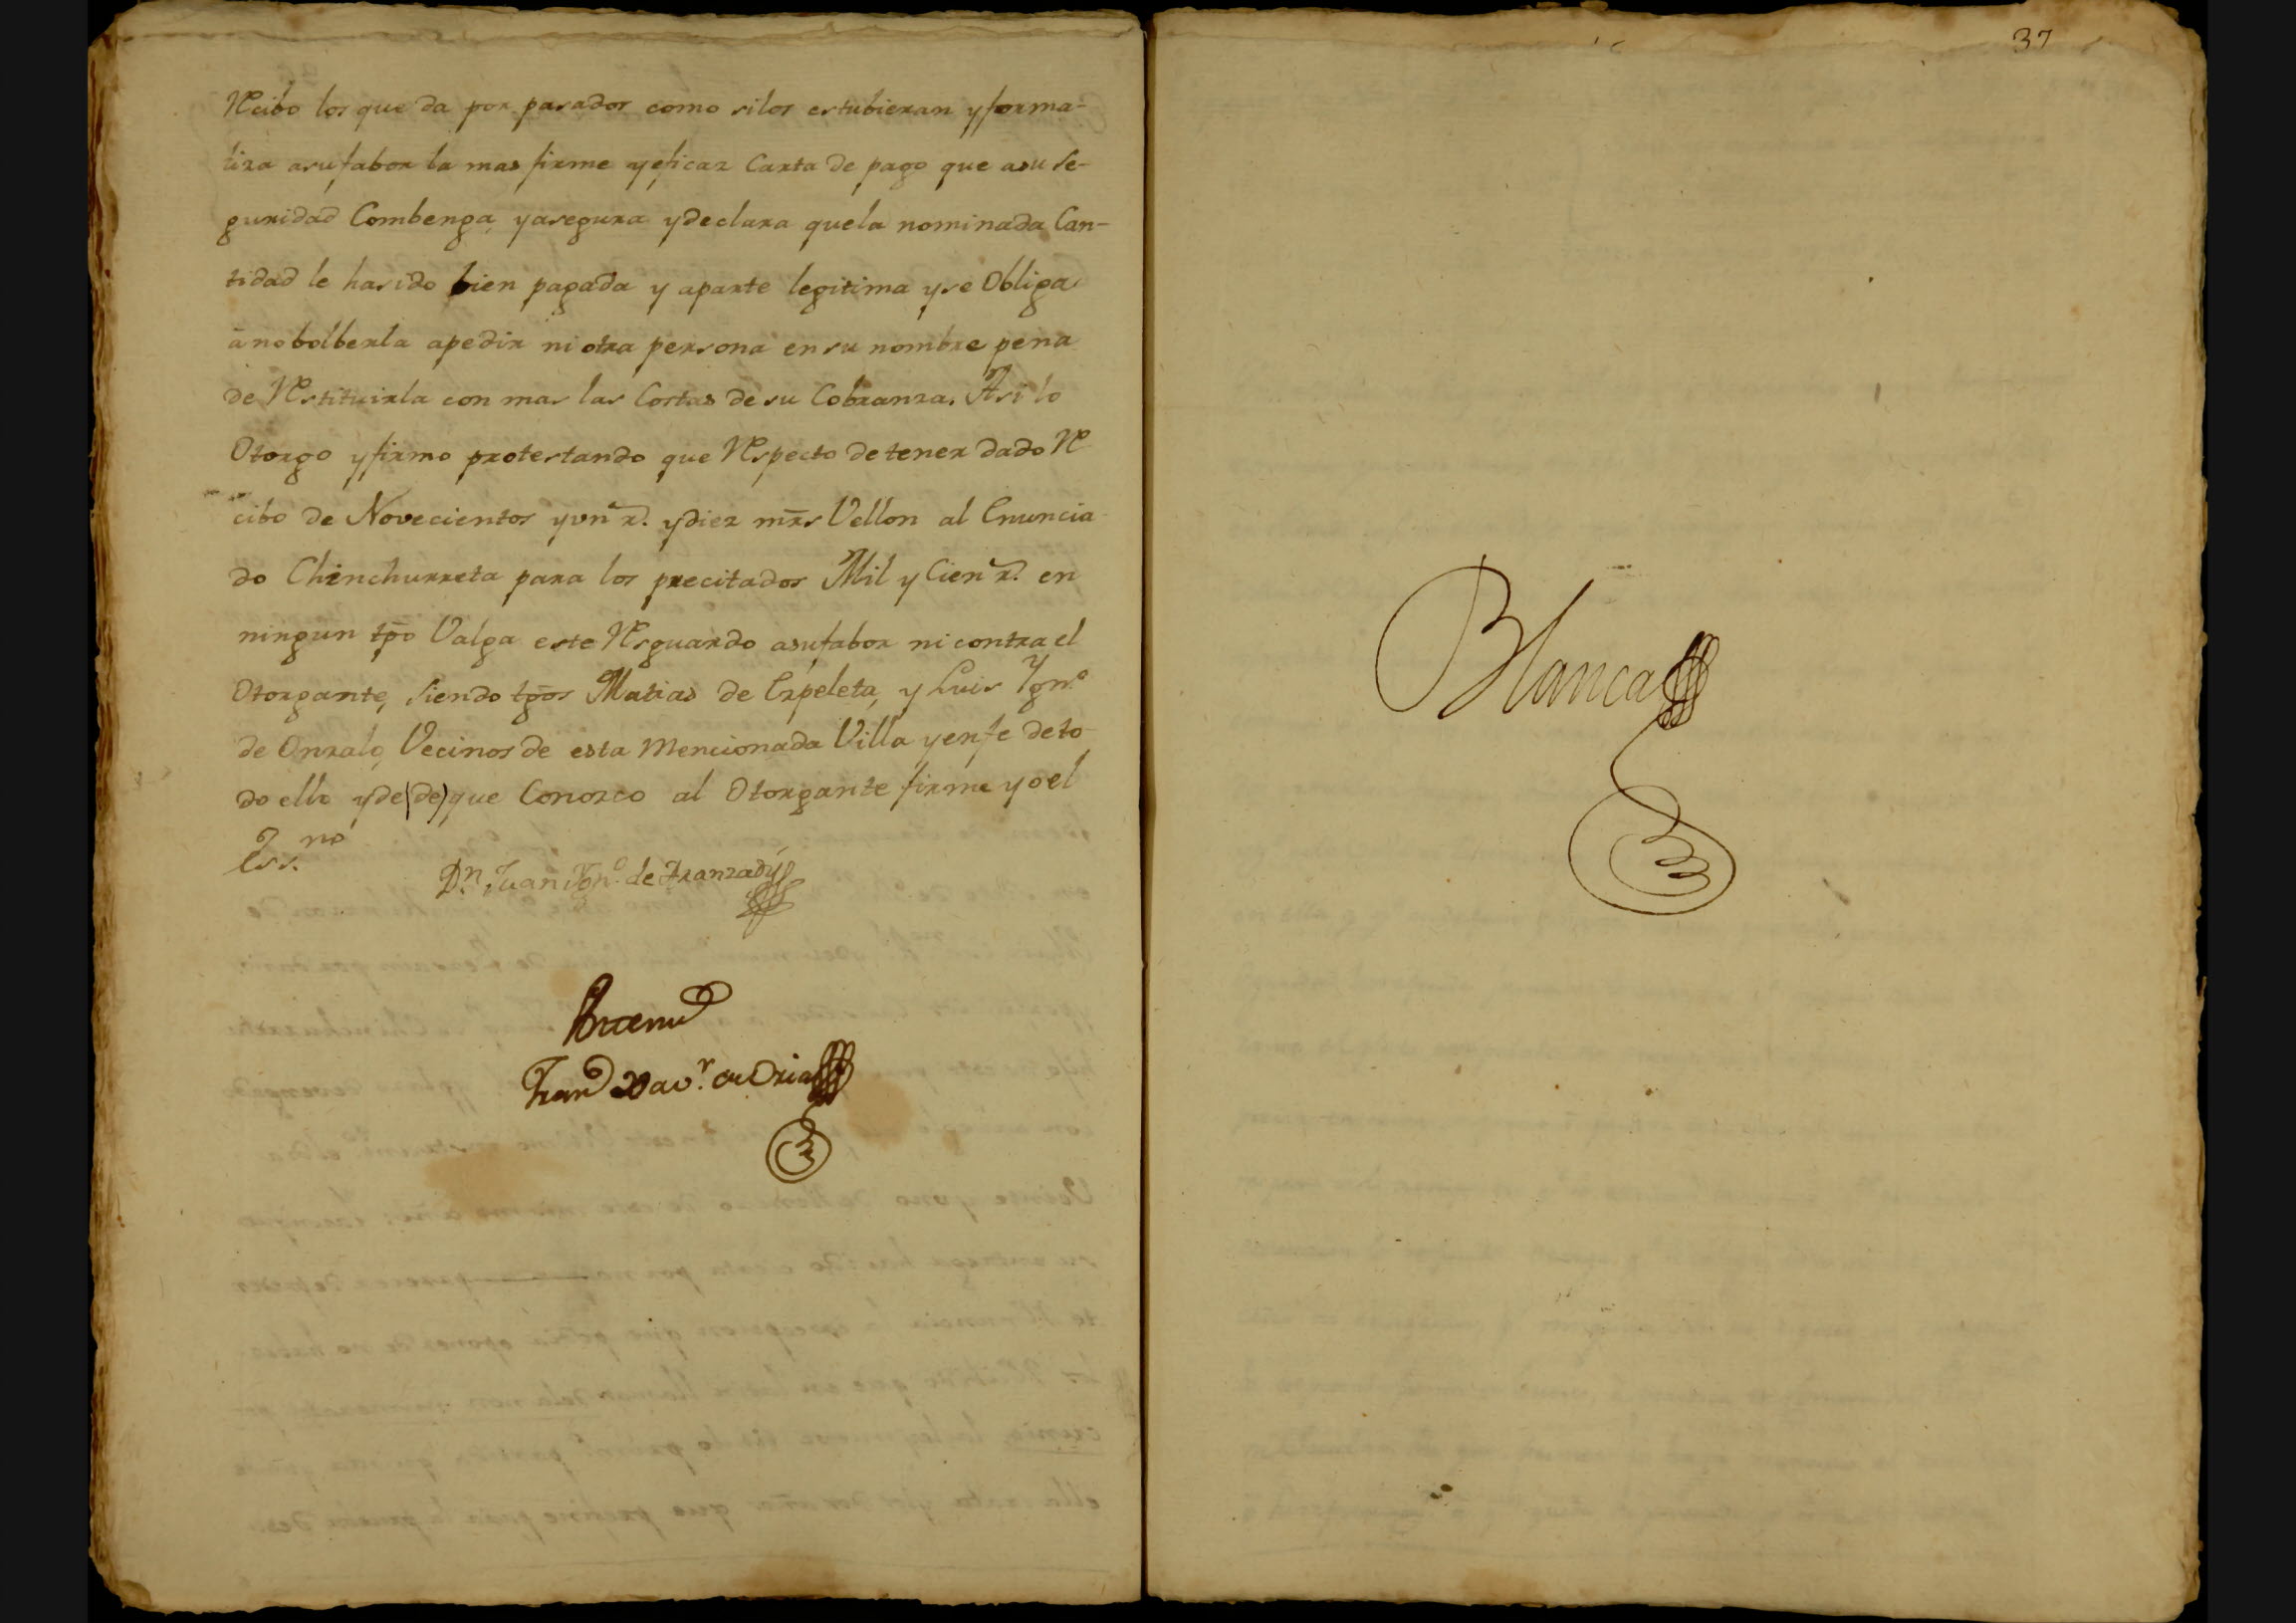 Recibo los que da por pasados como silos estubieran y forma-
liza asufabor la mas firme y eficaz Carta de pago que asu Se-
guridad Combenga, y asegura y declara quela nominada Can-
tidad le hasido bien pagada y aparte legitima y se Obliga
â no bolberla apedir ni otra persona en su nombre pena
de Restituirla con mas las Costas de su Cobranza. Asi lo
Otorgo y firmo protestando que Respecto de tener dado Re
cibo de Novecientos y un r.ˢ y diez mr̄s Vellon al Enuncia-
do Chinchurreta para los precitados Mil y Cien r.ˢ en
ningun tp̄o Valga este Resguardo asufabor ni contra el
Otorgante, Siendo tḡos Matias de Ezpeleta, y Luis Ygn.º
de Onzalo, Vecinos de esta Mencionada Villa y enfe de to-
do ello y de (de) que Conozco al Otorgante firme yo el
Ess.ⁿᵒ
D.ⁿ Juan Ygn.º de Aranzadi
Ante mi
Fran.ᶜᵒ Xav.ʳ de Oria
37
Blanca